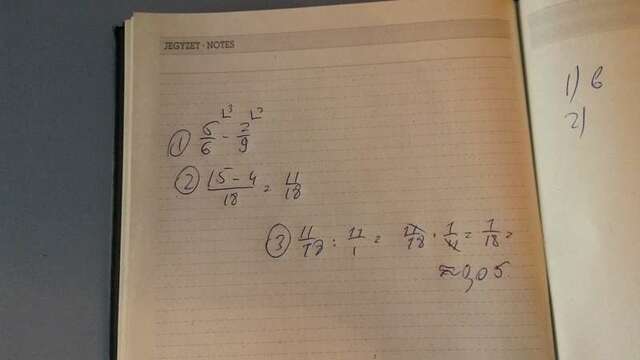 JEGYZET · NOTES
∟3 ∟2
① 5/6 - 2/9
② (15 - 4)/18 = 11/18
③ 11/18 : 11/1 = 11/18 · 1/11 = 1/18 =
≈ 0,05
1) 6
2)